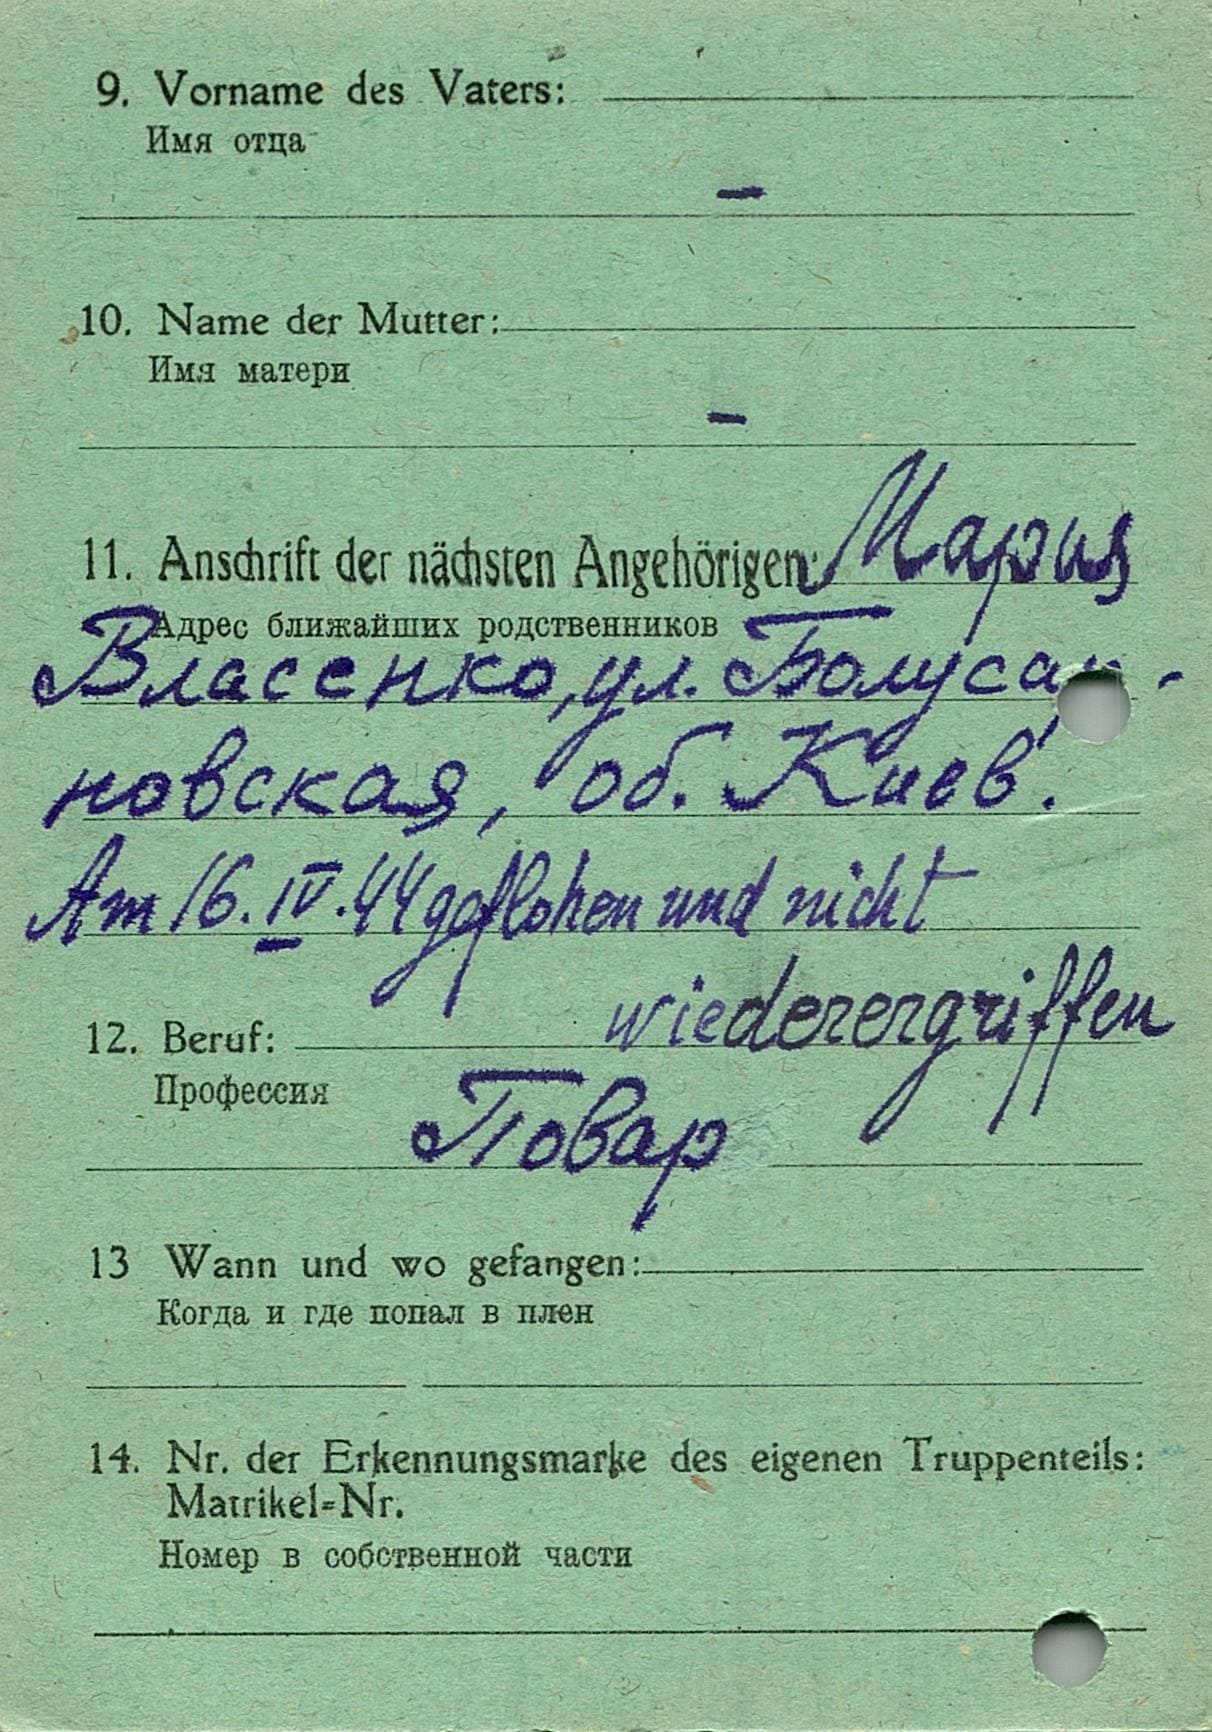 9. Vorname des Vaters:
Имя отца
–
10. Name der Mutter:
Имя матери
–
11. Anschrift der nächsten Angehörigen: Мария
Адрес ближайших родственников
Власенко, ул.
новская, об. Киев.
Am 16.IV.44 geflohen und nicht
wiederergriffen
12. Beruf:
Профессия
Повар
13 Wann und wo gefangen:
Когда и где попал в плен
14. Nr. der Erkennungsmarke des eigenen Truppenteils:
Matrikel=Nr.
Номер в собственной части